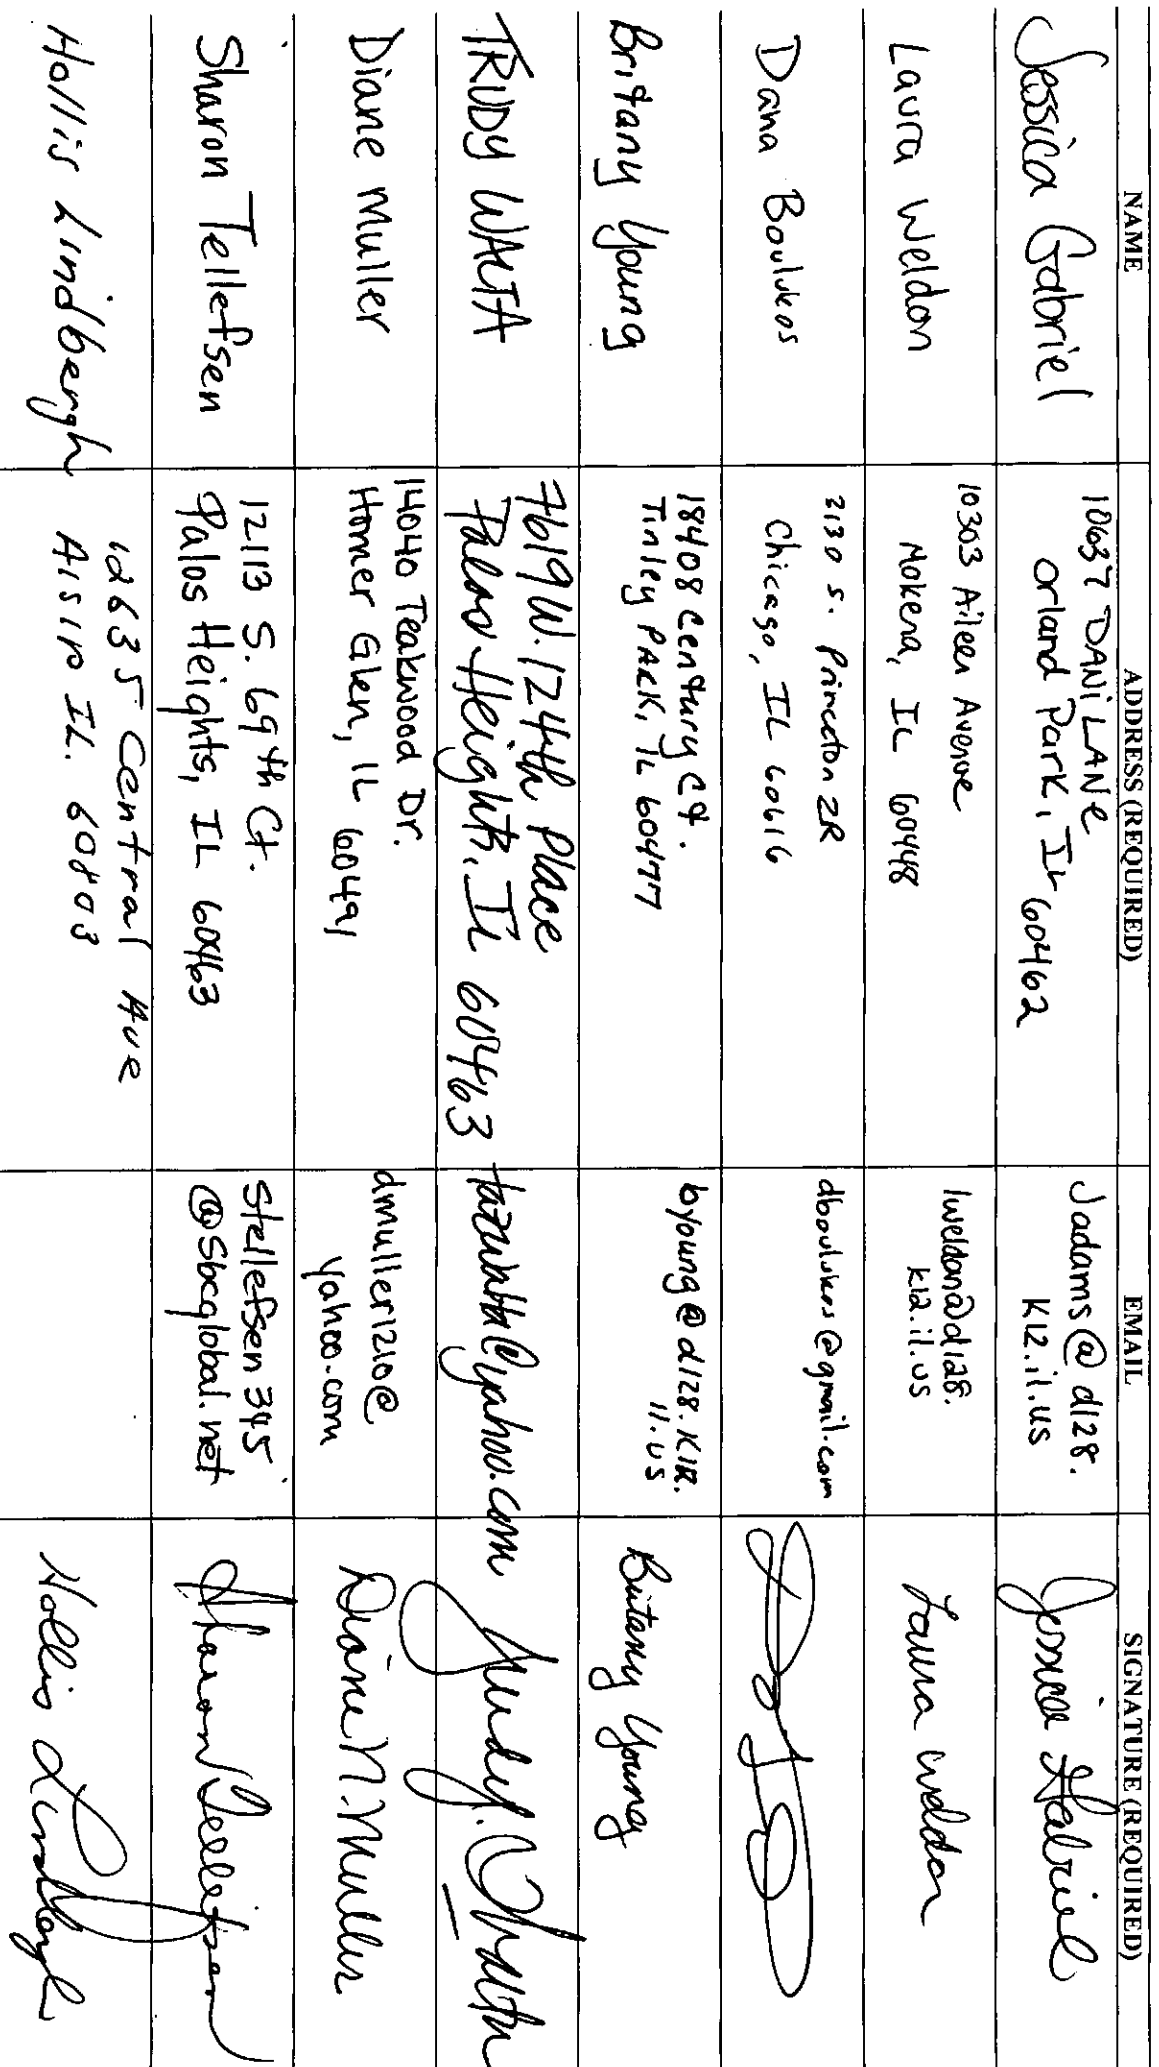 NAME ADDRESS (REQUIRED) EMAIL SIGNATURE (REQUIRED)
Jessica Gabriel
10637 DANi LANe
Orland Park, IL 60462
Jadams@d128.
K12.il.us
Jessica Gabriel
Laura Weldon
10303 Aileen Avenue
Mokena, IL 60448
lweldon@d128.
k12.il.us
Laura Weldon
Dana Boulukos
2130 S. Princeton 2R
Chicago, IL 60616
dboulukos@gmail.com
Britany Young
18408 Century Ct.
Tinley PARK, IL 60477
byoung@d128.K12.
il.us
Britany Young
TRUDY WALTA
7619 W. 124th Place
Palos Heights, IL 60463
Trudy Walta
Diane Muller
14040 Teakwood Dr.
Homer Glen, IL 60491
dmuller1210@
yahoo.com
Diane M. Muller
Sharon Tellefsen
12113 S. 69th Ct.
Palos Heights, IL 60463
Stellefsen345
@sbcglobal.net
Sharon Tellefsen
Hollis Lindbergh
12635 Central Ave
Alsip IL. 60803
Hollis Lindbergh